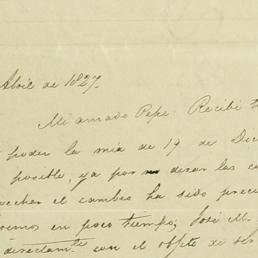 Abril de 1827.
Mi amado Pepe: Recibí
poder la mia de 19 de Dic
posible, ya por no dar las ca
el cambio ha sido preci
en poco tiempo; José M.
directamte. con el objeto de